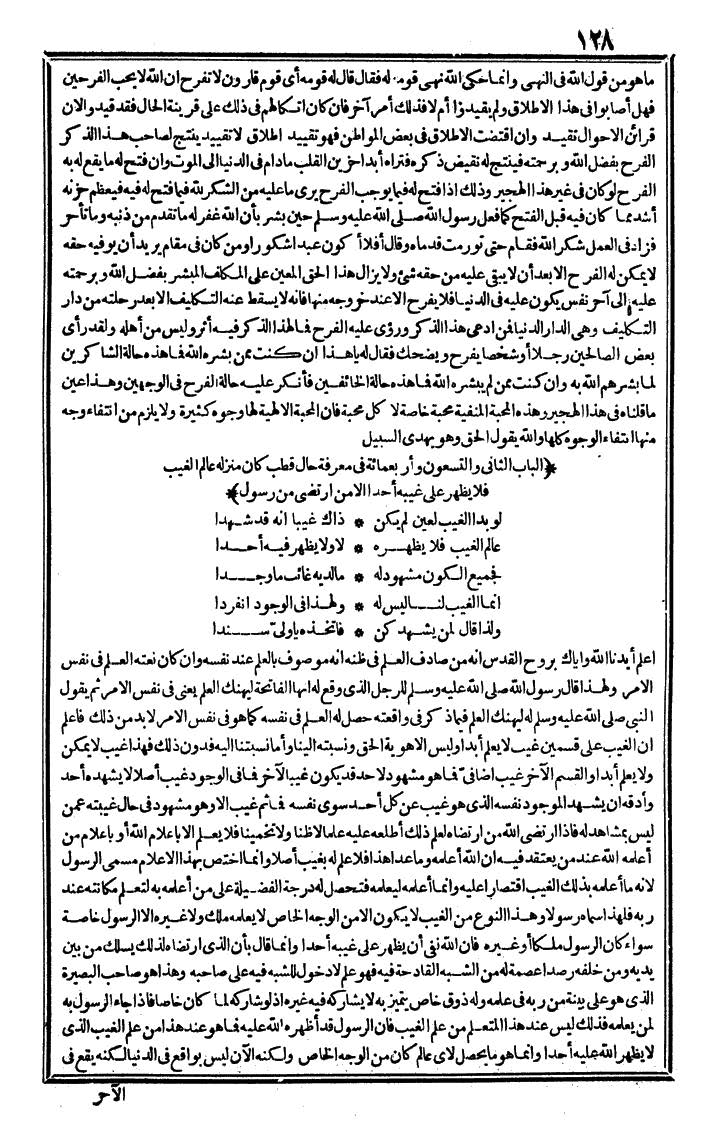 ١٢٨
ما هو من قول الله فى النهى وانما حكى الله نهى قومه له فقال قال له قومه أى قوم قارون لا تفرح ان الله لا يحب الفرحين
فهل أصابوا فى هذا الاطلاق ولم يقيدوا أم لا فذلك أمر آخر فان كان اتكالهم فى ذلك على قرينة الحال فقد قيد والان
قرائن الاحوال تقيد وان اقتضت الاطلاق فى بعض المواطن فهو تقييد اطلاق لا تقييد ينتج لصاحب هذا الذكر
الفرح بفضل الله وبرحمته فينتج له نقيض ذكره فتراه أبدا حزين القلب مادام فى الدنيا الى الموت وان فتح له ما يقع له به
الفرح لو كان فى غير هذا الهجير وذلك اذا فتح له فيما يوجب الفرح يرى ما عليه من الشكر لله فيما فتح له فيه فيعظم حزنه
أشد مما كان فيه قبل الفتح كما فعل رسول الله صلى الله عليه وسلم حين بشر بأن الله غفر له ما تقدم من ذنبه وما تأخر
فزاد فى العمل شكر الله فقام حتى تورمت قدماه وقال أفلا أكون عبدا شكورا ومن كان فى مقام يريد أن يوفيه حقه
لا يمكن له الفرح الا بعد أن لا يبقى عليه من حقه شئ ولا يزال هذا الحق المعين على المكلف المبشر بفضل الله وبرحمته
عليه الى آخر نفس يكون عليه فى الدنيا فلا يفرح الا عند خروجه منها فانه لا يسقط عنه التكليف الا بعد رحلته من دار
التكليف وهى الدار الدنيا فمن ادعى هذا الذكر ورؤى عليه الفرح فما لهذا الذكر فيه أثر وليس من أهله ولقد رأى
بعض الصالحين رجلا أو شخصا يفرح ويضحك فقال له يا هذا ان كنت ممن بشره الله فما هذه حالة الشاكرين
لما بشرهم الله به وان كنت ممن لم يبشره الله فما هذه حالة الخائفين فأنكر عليه حالة الفرح فى الوجهين وهذا عين
ما قلناه فى هذا الهجير وهذه المحبة المنفية محبة خاصة لا كل محبة فان المحبة الالهية لها وجوه كثيرة ولا يلزم من انتفاء وجه
منها انتفاء الوجوه كلها والله يقول الحق وهو يهدى السبيل
﴿الباب الثانى والتسعون وأربعمائة فى معرفة حال قطب كان منزله عالم الغيب
فلا يظهر على غيبه أحدا الا من ارتضى من رسول﴾
لو بدا الغيب لعين لم يكن * ذاك غيبا انه قد شهدا
عالم الغيب فلا يظهره * لا ولا يظهر فيه أحدا
فجميع الكون مشهود له * ما لديه غائب ما وجدا
انما الغيب لنا ليس له * ولهذا فى الوجود انفردا
ولذا قال لمن يشهد كن * فاتخذه يا ولى سندا
اعلم أيدنا الله واياك بروح القدس انه من صادف العلم فى ظنه انه موصوف بالعلم عند نفسه وان كان نعته العلم فى نفس
الامر ولهذا قال رسول الله صلى الله عليه وسلم للرجل الذى وقع له انها الفاتحة ليهنك العلم يعنى فى نفس الامر ثم يقول
النبى صلى الله عليه وسلم له ليهنك العلم فيما ذكر فى واقعته حصل له العلم فى نفسه كما هو فى نفس الامر لا بد من ذلك فاعلم
ان الغيب على قسمين غيب لا يعلم أبدا وليس الا هوية الحق ونسبته الينا وأما نسبتنا اليه فدون ذلك فهذا غيب لا يمكن
ولا يعلم أبدا والقسم الآخر غيب اضافى فما هو مشهود لاحد قد يكون غيبا لآخر فما فى الوجود غيب أصلا لا يشهده أحد
وأدقه ان يشهد الموجود نفسه الذى هو غيب عن كل أحد سوى نفسه فما ثم غيب الا وهو مشهود فى حال غيبته عمن
ليس بمشاهد له فاذا ارتضى الله من ارتضاه لعلم ذلك أطلعه عليه علما لا ظنا ولا تخمينا فلا يعلم الا باعلام الله أو باعلام من
أعلمه الله عند من يعتقد فيه ان الله أعلمه وما عدا هذا فلا علم له بغيب أصلا وانما اختص بهذا الاعلام مسمى الرسول
لانه ما أعلمه بذلك الغيب اقتصارا عليه وانما أعلمه ليعلمه فتحصل له درجة الفضيلة على من أعلمه به لتعلم مكانته عند
ربه فلهذا سماه رسولا وهذا النوع من الغيب لا يكون الا من الوجه الخاص لا يعلمه ملك ولا غيره الا الرسول خاصة
سواء كان الرسول ملكا أو غيره فان الله نفى أن يظهر على غيبه أحدا وانما قال بأن الذى ارتضاه لذلك يسلك من بين
يديه ومن خلفه رصدا عصمة له من الشبه القادحة فيه فهو علم لا دخول للشبه فيه على صاحبه وهذا هو صاحب البصيرة
الذى هو على بينة من ربه فى علمه وله ذوق خاص يتميز به لا يشاركه فيه غيره اذ لو شاركه لما كان خاصا فاذا جاء الرسول به
لمن يعلمه فذلك ليس عند هذا المتعلم من علم الغيب فان الرسول قد أظهره الله عليه فما هو عند هذا من علم الغيب الذى
لا يظهر الله عليه أحدا وانما هو ما يحصل لاى عالم كان من الوجه الخاص ولكنه الآن ليس بواقع فى الدنيا لكنه يقع فى
الآخر